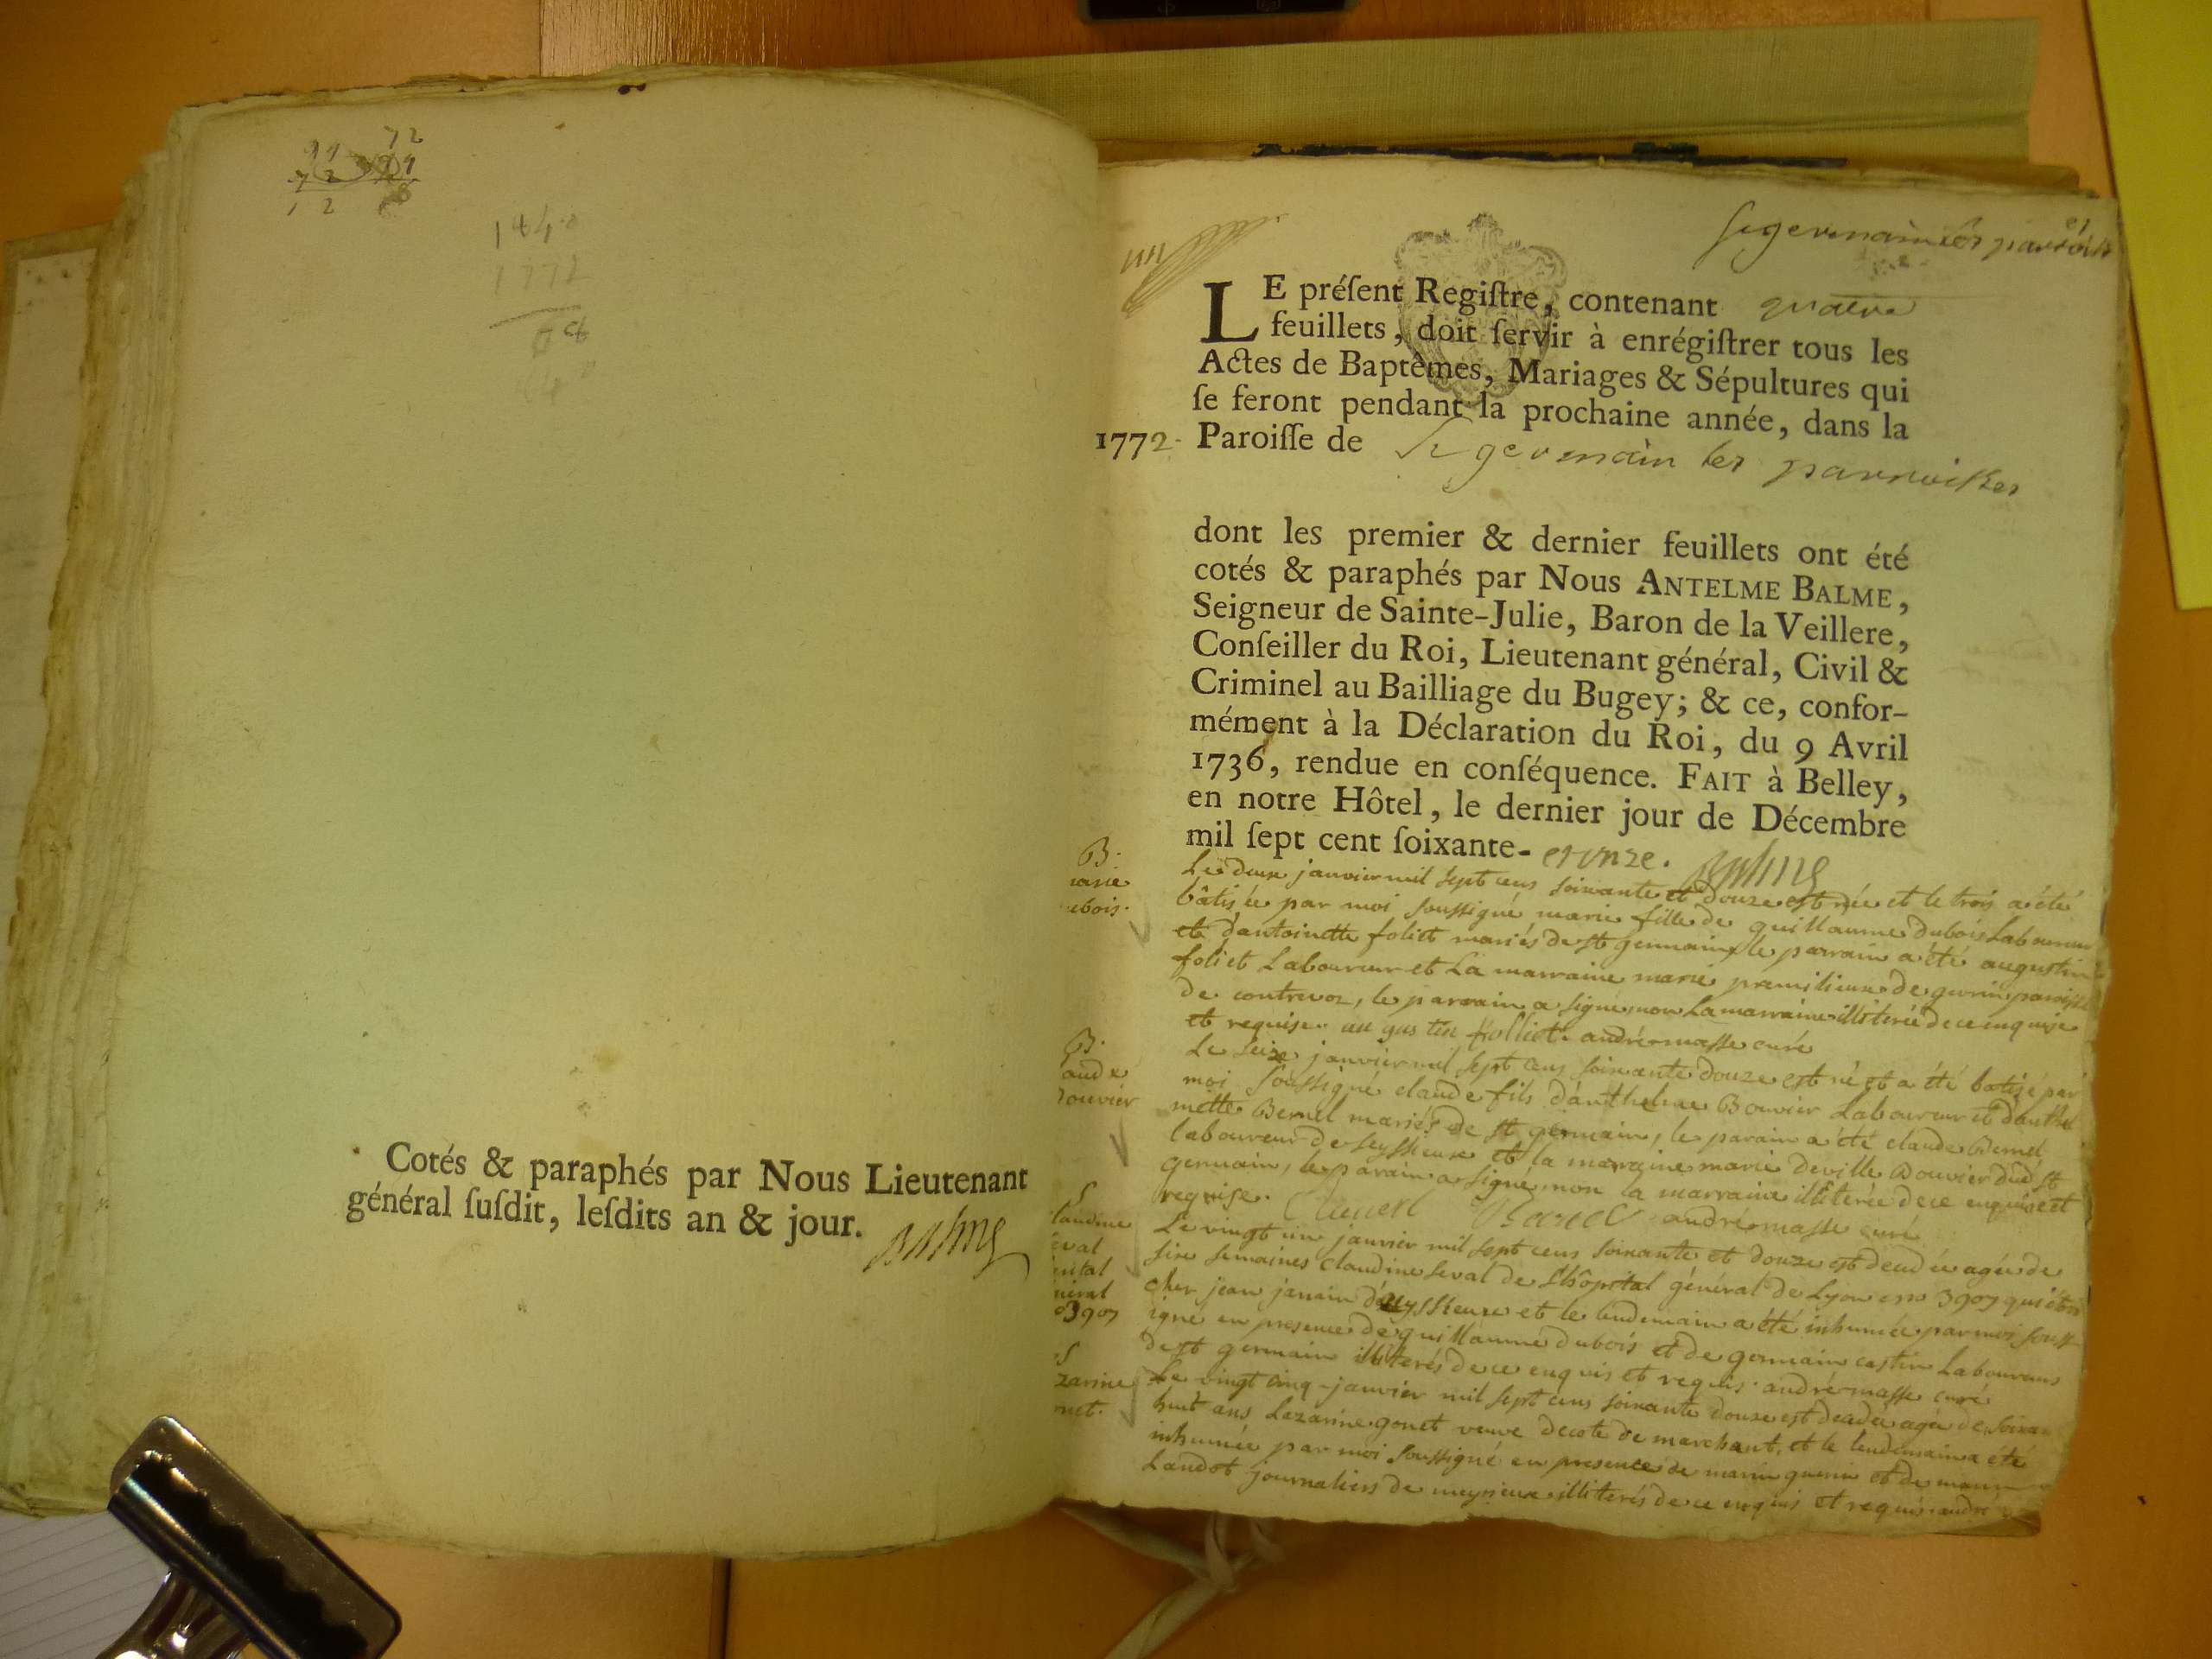 11 72
72 11
1 2 8
1440
1772
Cotés & paraphés par Nous Lieutenant
général ſuſdit, leſdits an & jour.
Balme
St germain les parroisses
LE préſent Regiſtre, contenant quatre
feuillets, doit ſervir à enrégiſtrer tous les
Actes de Baptêmes, Mariages & Sépultures qui
ſe feront pendant la prochaine année, dans la
1772. Paroiſſe de St germain les parroisses
dont les premier & dernier feuillets ont été
cotés & paraphés par Nous ANTELME BALME,
Seigneur de Sainte-Julie, Baron de la Veillere,
Conſeiller du Roi, Lieutenant général, Civil &
Criminel au Bailliage du Bugey; & ce, confor-
mément à la Déclaration du Roi, du 9 Avril
1736, rendue en conſéquence. FAIT à Belley,
en notre Hôtel, le dernier jour de Décembre
mil ſept cent ſoixante- et onze. Balme
B.
marie
dubois.
Le deux janvier mil sept cens soixante et douze est née et le trois a été
bâtisée par moi soussigné marie fille de guillaume dubois Laboureur
et dantoinette foliet mariés de st germain, le parrain a été augustin
foliet Laboureur et La marraine marie premilieux de gevrin paroisse
de contrevoz, le parrain a signé non La marraine illiterée de ce enquise
et requise. augustin folliet. andré masse curé
B.
claude
Bouvier
Le seize janvier mil sept cens soixante douze est né et a été batisé par
moi soussigné claude fils d'anthelme Bouvier Laboureur et d'anthel
mette Bernel mariés de st germain, le parain a été claude Bernel
laboureur de seyssieux et la marraine marie deville Bouvier dud st
germain, le parain a signé non la marraine illiterée de ce enquise et
requise. andré masse curé
S
claudine
seval
général
no 3907
Le vingt un janvier mil sept cens soixante et douze est decedée agée de
six semaines claudine seval de L'hôpital général de Lyon no 3907 qui étoit
cher jean janain d'eyssieux et le lendemain a été inhumée par moi souss
igné en presence de guillaume dubois et de germain castin Laboureurs
de st germain illiterés de ce enquis et requis. andré masse curé
S
Lazarine
gonet.
Le vingt cinq janvier mil sept cens soixante douze est decedée agée de soixan
huit ans Lazarine gonet veuve decote de marchant, et le lendemain a été
inhumée par moi soussigné en presence de marin guerin et de
Landot journaliers de meyrieux illiterés de ce enquis et requis. andré